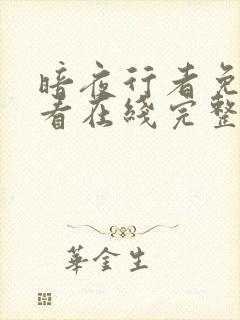 暗夜行者免
看在线完整
華金生